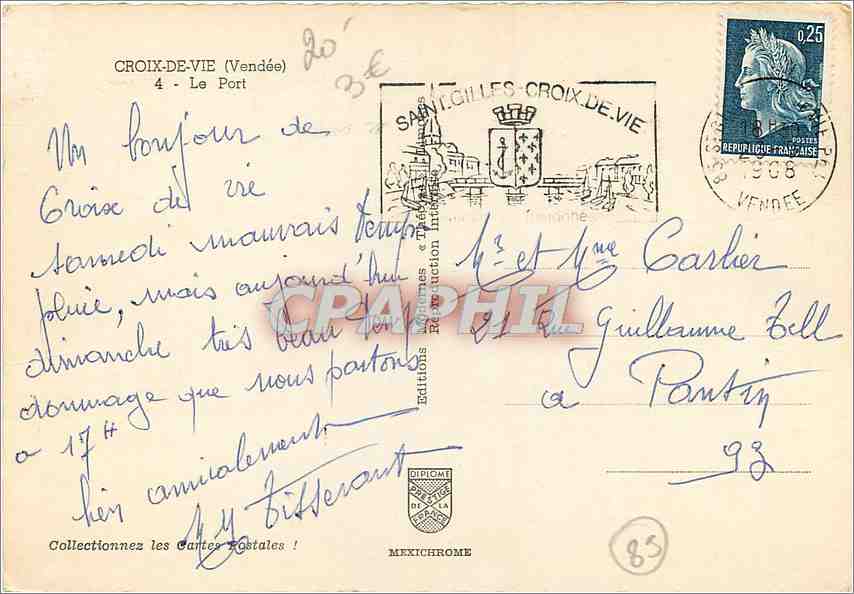 CROIX-DE-VIE (Vendée)
4 - Le Port
20
3 €
Un bonjour de
Croix de vie
samedi mauvais temps
pluie, mais aujourd'hui
dimanche très beau temps
dommage que nous partons
a 17 H
bien amicalement
Tisserant
Collectionnez les Cartes Postales !
Editions Modernes « Théo
Reproduction Interdite
CPAPHIL
DIPLOME
PRESTIGE
DE LA
FRANCE
MEXICHROME
SAINT.GILLES-CROIX.DE.VIE
0,25
POSTES
REPUBLIQUE FRANÇAISE
18 H
1968
VENDEE
Mr et Mme Carlier
21 Rue Guillaume Tell
a Pantin
93
85